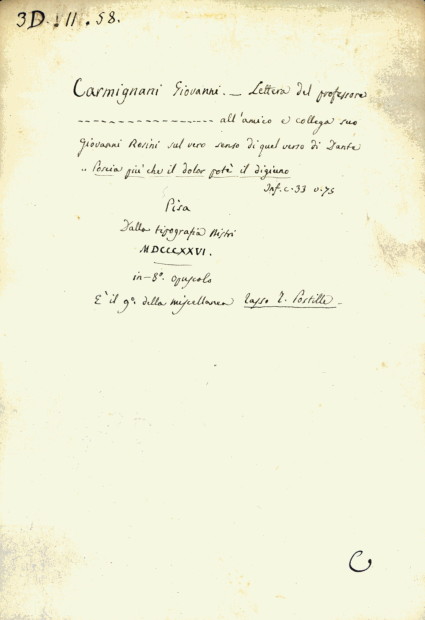 3D. II. 58.
Carmignani Giovanni. — Lettera del professore
- - - - - - - - - - - - - - - - all'amico e collega suo
Giovanni Rosini sul vero senso di quel verso di Dante
„ Poscia più che il dolor potè il digiuno
Inf. c. 33 v. 75
Pisa
Dalla tipografia Nistri
MDCCCXXVI.
in-8º. opuscolo
E' il 9º. della miscellanea Tasso T. Postille -
C